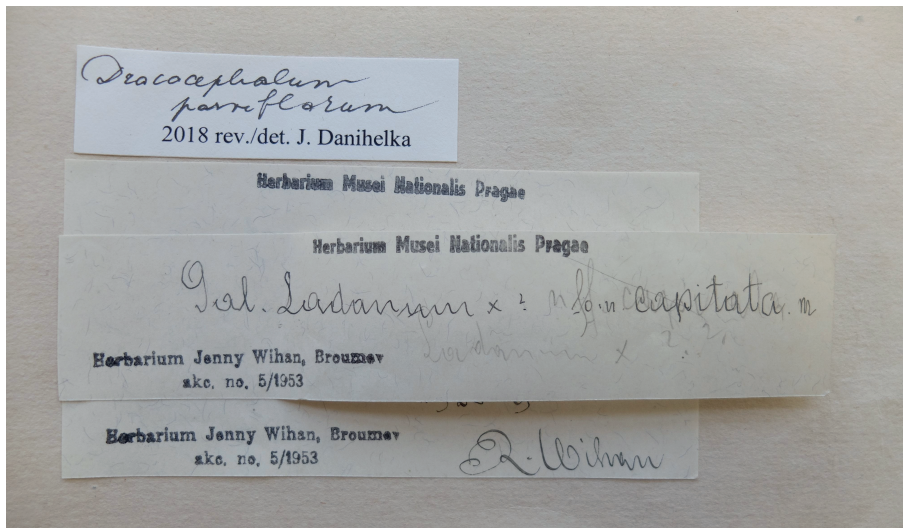 Dracocephalum
parviflorum
2018 rev./det. J. Danihelka
Herbarium Musei Nationalis Pragae
Herbarium Musei Nationalis Pragae
Gal. Ladanum x ? capitata. m
Ladanum x ?
Herbarium Jenny Wihan, Broumov
akc. no. 5/1953
Herbarium Jenny Wihan, Broumov
akc. no. 5/1953
R. Wihan